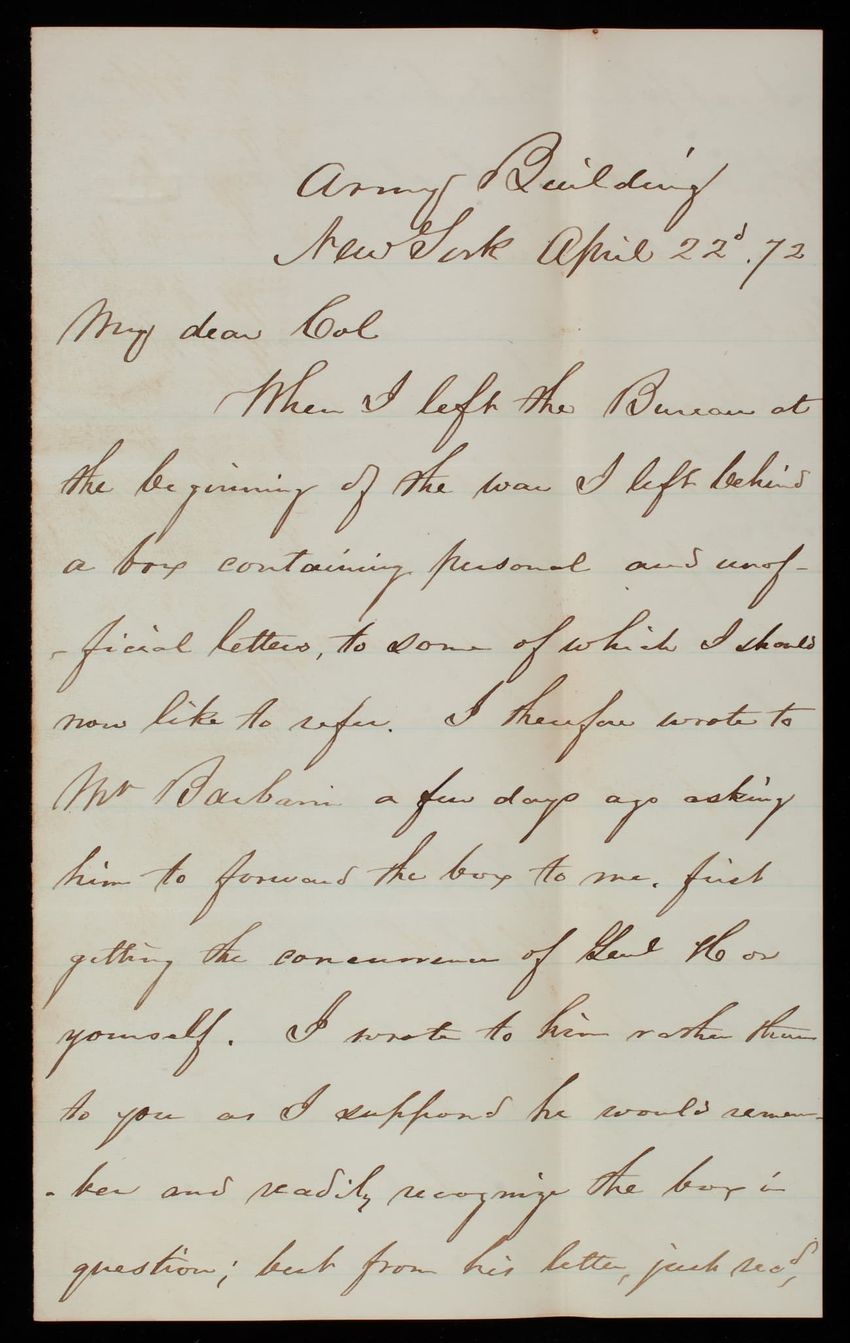 Army Building
New York April 22d. 72
My dear Col
When I left the Bureau at
the beginning of the war I left behind
a box containing personal and unof-
-ficial letters, to some of which I should
now like to refer. I therefore wrote to
Mr Barbarin a few days ago asking
him to forward the box to me, first
getting the concurrence of Genl H or
yourself. I wrote to him rather than
to you as I supposed he would remem-
-ber and readily recognize the box in
question; but from his letter, just recd,